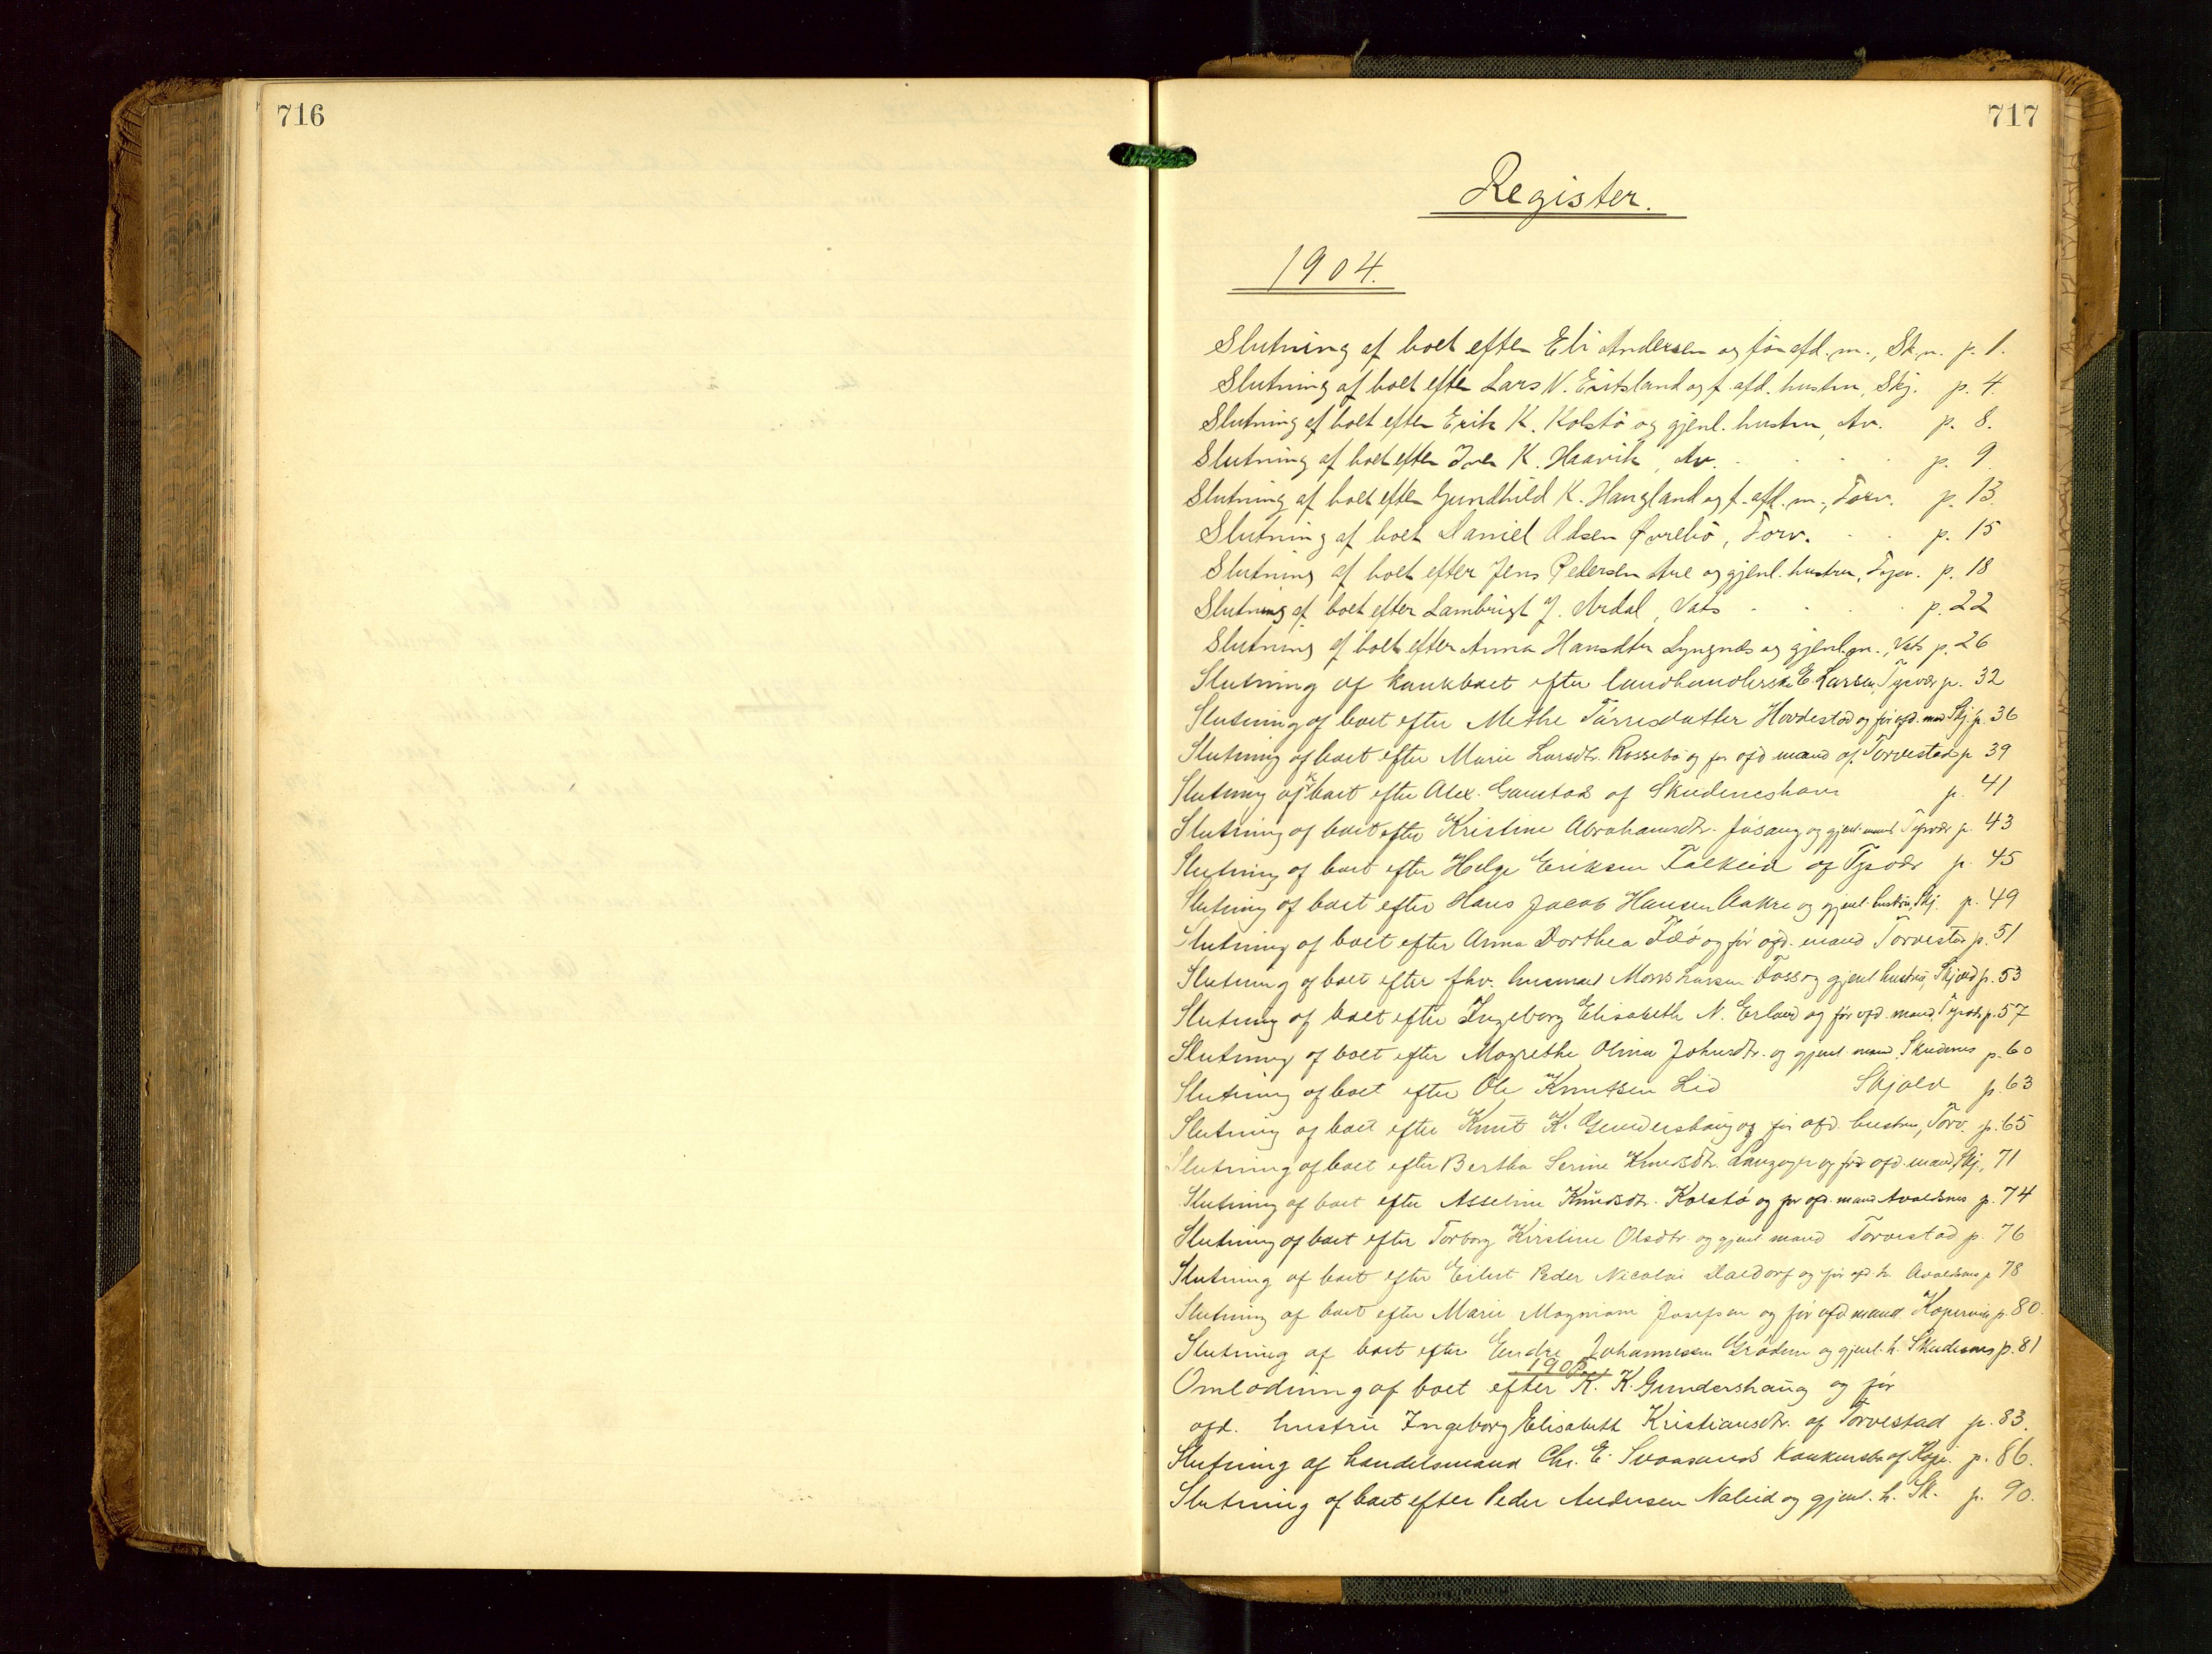 716
717
Register.
1904.
Slutning af boet efter Eli Andersen og før afd. m., Sk.n. p. 1.
Slutning af boet efter Lars N. Eritsland og f. afd. hustru, Skj. p. 4.
Slutning af boet efter Erik K. Kolstø og gjenl. hustru, Av. p. 8.
Slutning af boet efter Iver K. Haavik, Av. p. 9
Slutning af boet efter Gundhild K. Haugland og f. afd. m., Torv. p. 13.
Slutning af boet Daniel Olsen Øvrebö, Torv. p. 15
Slutning af boet efter Jens Pedersen Are og gjenl. hustru, Tysv. p. 18
Slutning af boet efter Lambrigt J. Årdal, Vats p. 22
Slutning af boet efter Anna Hansdter Lyngnæs og gjenl. m., Vats p. 26
Slutning af konkboet efter landhandlerske E. Larsen, Tysvær p. 32
Slutning af boet efter Methe Tørresdatter Hovdestad og før afd. mand Skj. p. 36
Slutning af boet efter Marie Larsdtr. Rossebø og før afd mand af Torvestad p 39
Slutning af k boet efter Alex. Gaustad af Skudeneshavn p. 41
Slutning af boet efter Kristine Abrahamsdtr. Jøsang og gjenl. mand Tysvær p. 43
Slutning af boet efter Helge Eriksen Falkeid af Tysvær p. 45
Slutning af boet efter Hans Jacob Hansen Aakre og gjenl. hustru, Skj. p. 49
Slutning af boet efter Anna Dorthea Fæø og før afd. mand Torvestad p. 51
Slutning af boet efter fhv. husmand Mons Larsen Foss og gjenl hustru, Skjold p. 53
Slutning af boet efter Ingeborg Elisabeth N. Erland og før afd. mand Tysvær p. 57
Slutning af boet efter Magrethe Olina Johnsdtr. og gjenl. mand, Skudenes p. 60
Slutning af boet efter Ole Knutsen Lid Skjold p. 63
Slutning af boet efter Knut K. Gundershaug og før afd. hustru, Torv. p. 65
Slutning af boet efter Bertha Serine Knudsdtr. Langåger og før afd. mand, Skj., 71
Slutning af boet efter Asseline Knudsdtr. Kolstø og før afd. mand Avaldsnes p. 74
Slutning af boet efter Torborg Kirstine Olsdtr og gjenl mand Torvestad p. 76
Slutning af boet efter Eilert Peder Nicolai Valdorf og før afd. h. Avaldsnes p 78
Slutning af boet efter Marie Josefsen og før afd mand Kopervig p. 80.
Slutning af boet efter Endre Johannesen Grødem og gjenl. h. Skudenes p. 81
1905.
Omlodning af boet efter K. K. Gundershaug og før
afd. hustru Ingeborg Elisabeth Kristiansdtr. af Torvestad p. 83.
Slutning af handelsmand Chr. E. Svaasands konkursbo af Kope. p. 86.
Slutning af boet efter Peder Andersen Naleid og gjenl. h. Sk. p. 90.